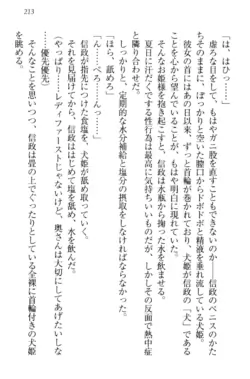 213
「は、はひっ……」
虚ろな目をして、もはやガニ股を直すこともできない――信政のペニスのかた
ちそのままに、ぽっかりと空いた膣口からドボドボと精液を垂れ流している犬姫。
彼女の首にはあの日以来、ずっと首輪が付いており、犬姫が信政の「犬」である
ことを心から望んでいることが、もはや明白に現れていた。
そんなお姫様を抱き起こすと、信政は水瓶から掬った水を飲ませる。
夏日に汗だくでする性行為はとても気持ちいいものだ。しかしその反面で熱中症
と隣り合わせだ。
しっかりと、定期的な水分補給と塩分の摂取をしなければならなかった。
「ほら、舐めろ」
「ん……ぺろ……んっ……」
信政が指先に付けた食塩を、犬姫が舐める。
それを見届けてから、信政はは塩を舐め、水を飲んだ。
（やっぱり……レディファーストじゃないけど、奥さんは大切にしてあげたいしな
……優先優先）
そんなことを思いつつ、信政は畳の上でぐったりとしている全裸に首輪付きの犬姫
を眺める。